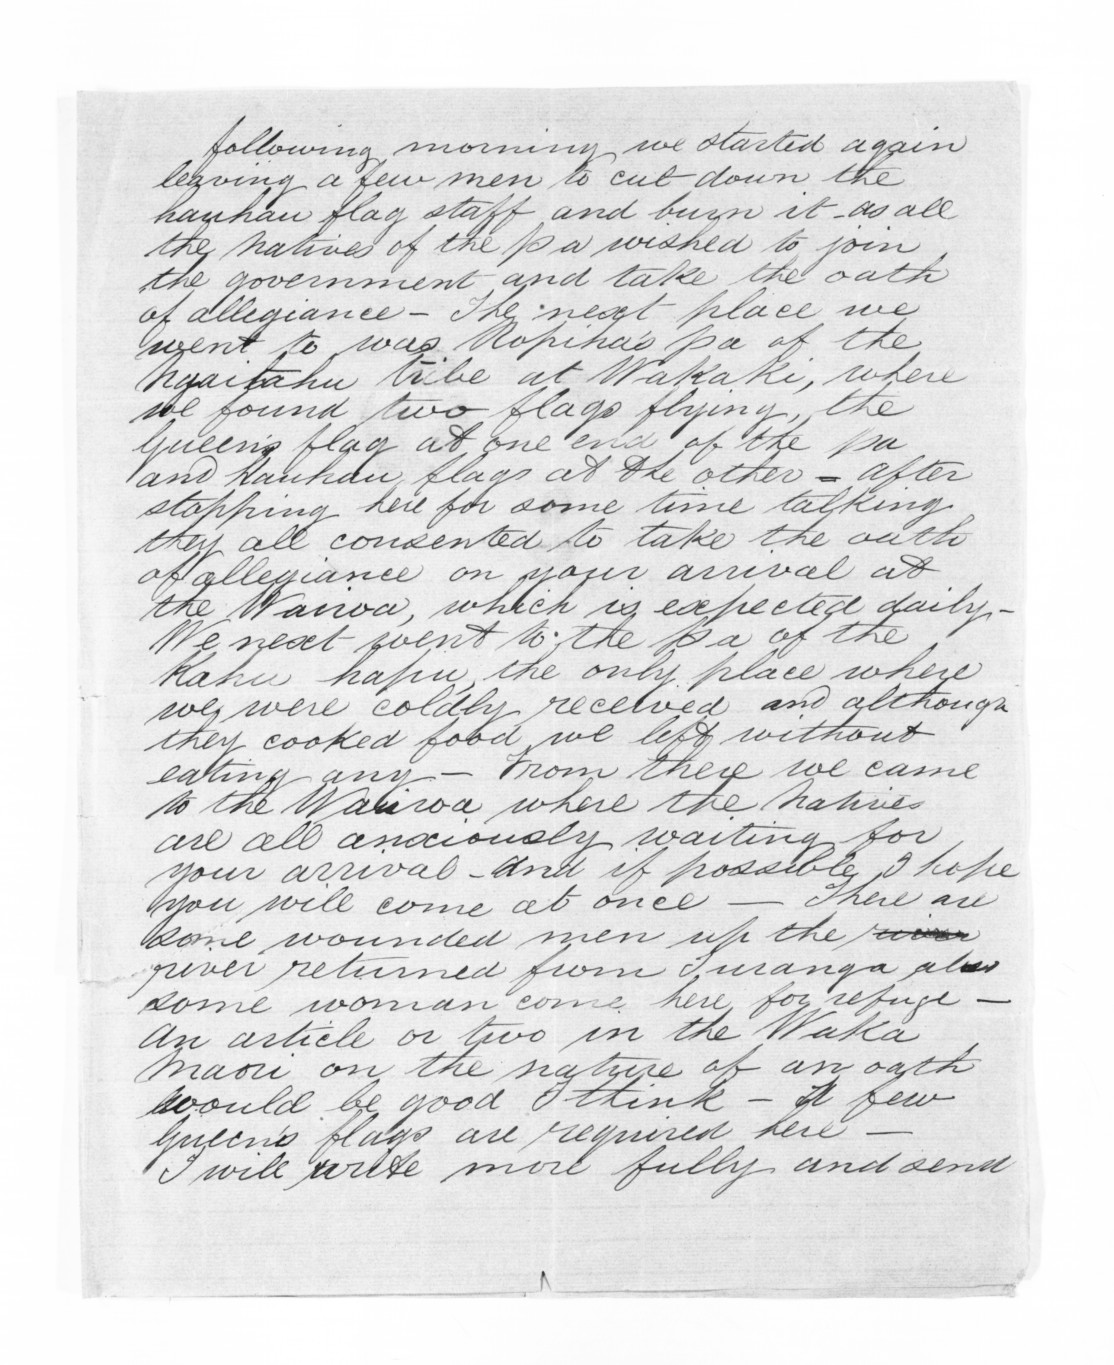 following morning we started again
leaving a few men to cut down the
hauhau flag staff and burn it - as all
the Natives of the pa wished to join
the government and take the oath
of allegiance - The next place we
went to was Ropiha's pa of the
Ngaitahu tribe at Wakaki, where
we found two flags flying, the
Queen's flag at one end of the pa
and Hauhau flags at the other - after
stopping here for some time talking
they all consented to take the oath
of allegiance on your arrival at
the Wairoa, which is expected daily -
We next went to the pa of the
Kahu hapu, the only place where
we were coldly received and although
they cooked food we left without
eating any - From there we came
to the Wairoa where the Natives
are all anxiously waiting for
your arrival - And if possible I hope
you will come at once - There are
some wounded men up the river
river returned from Turanga also
some woman come here for refuge -
An article or two in the Waka
Maori on the nature of an oath
would be good I think - A few
Queen's flags are required here -
I will write more fully and send